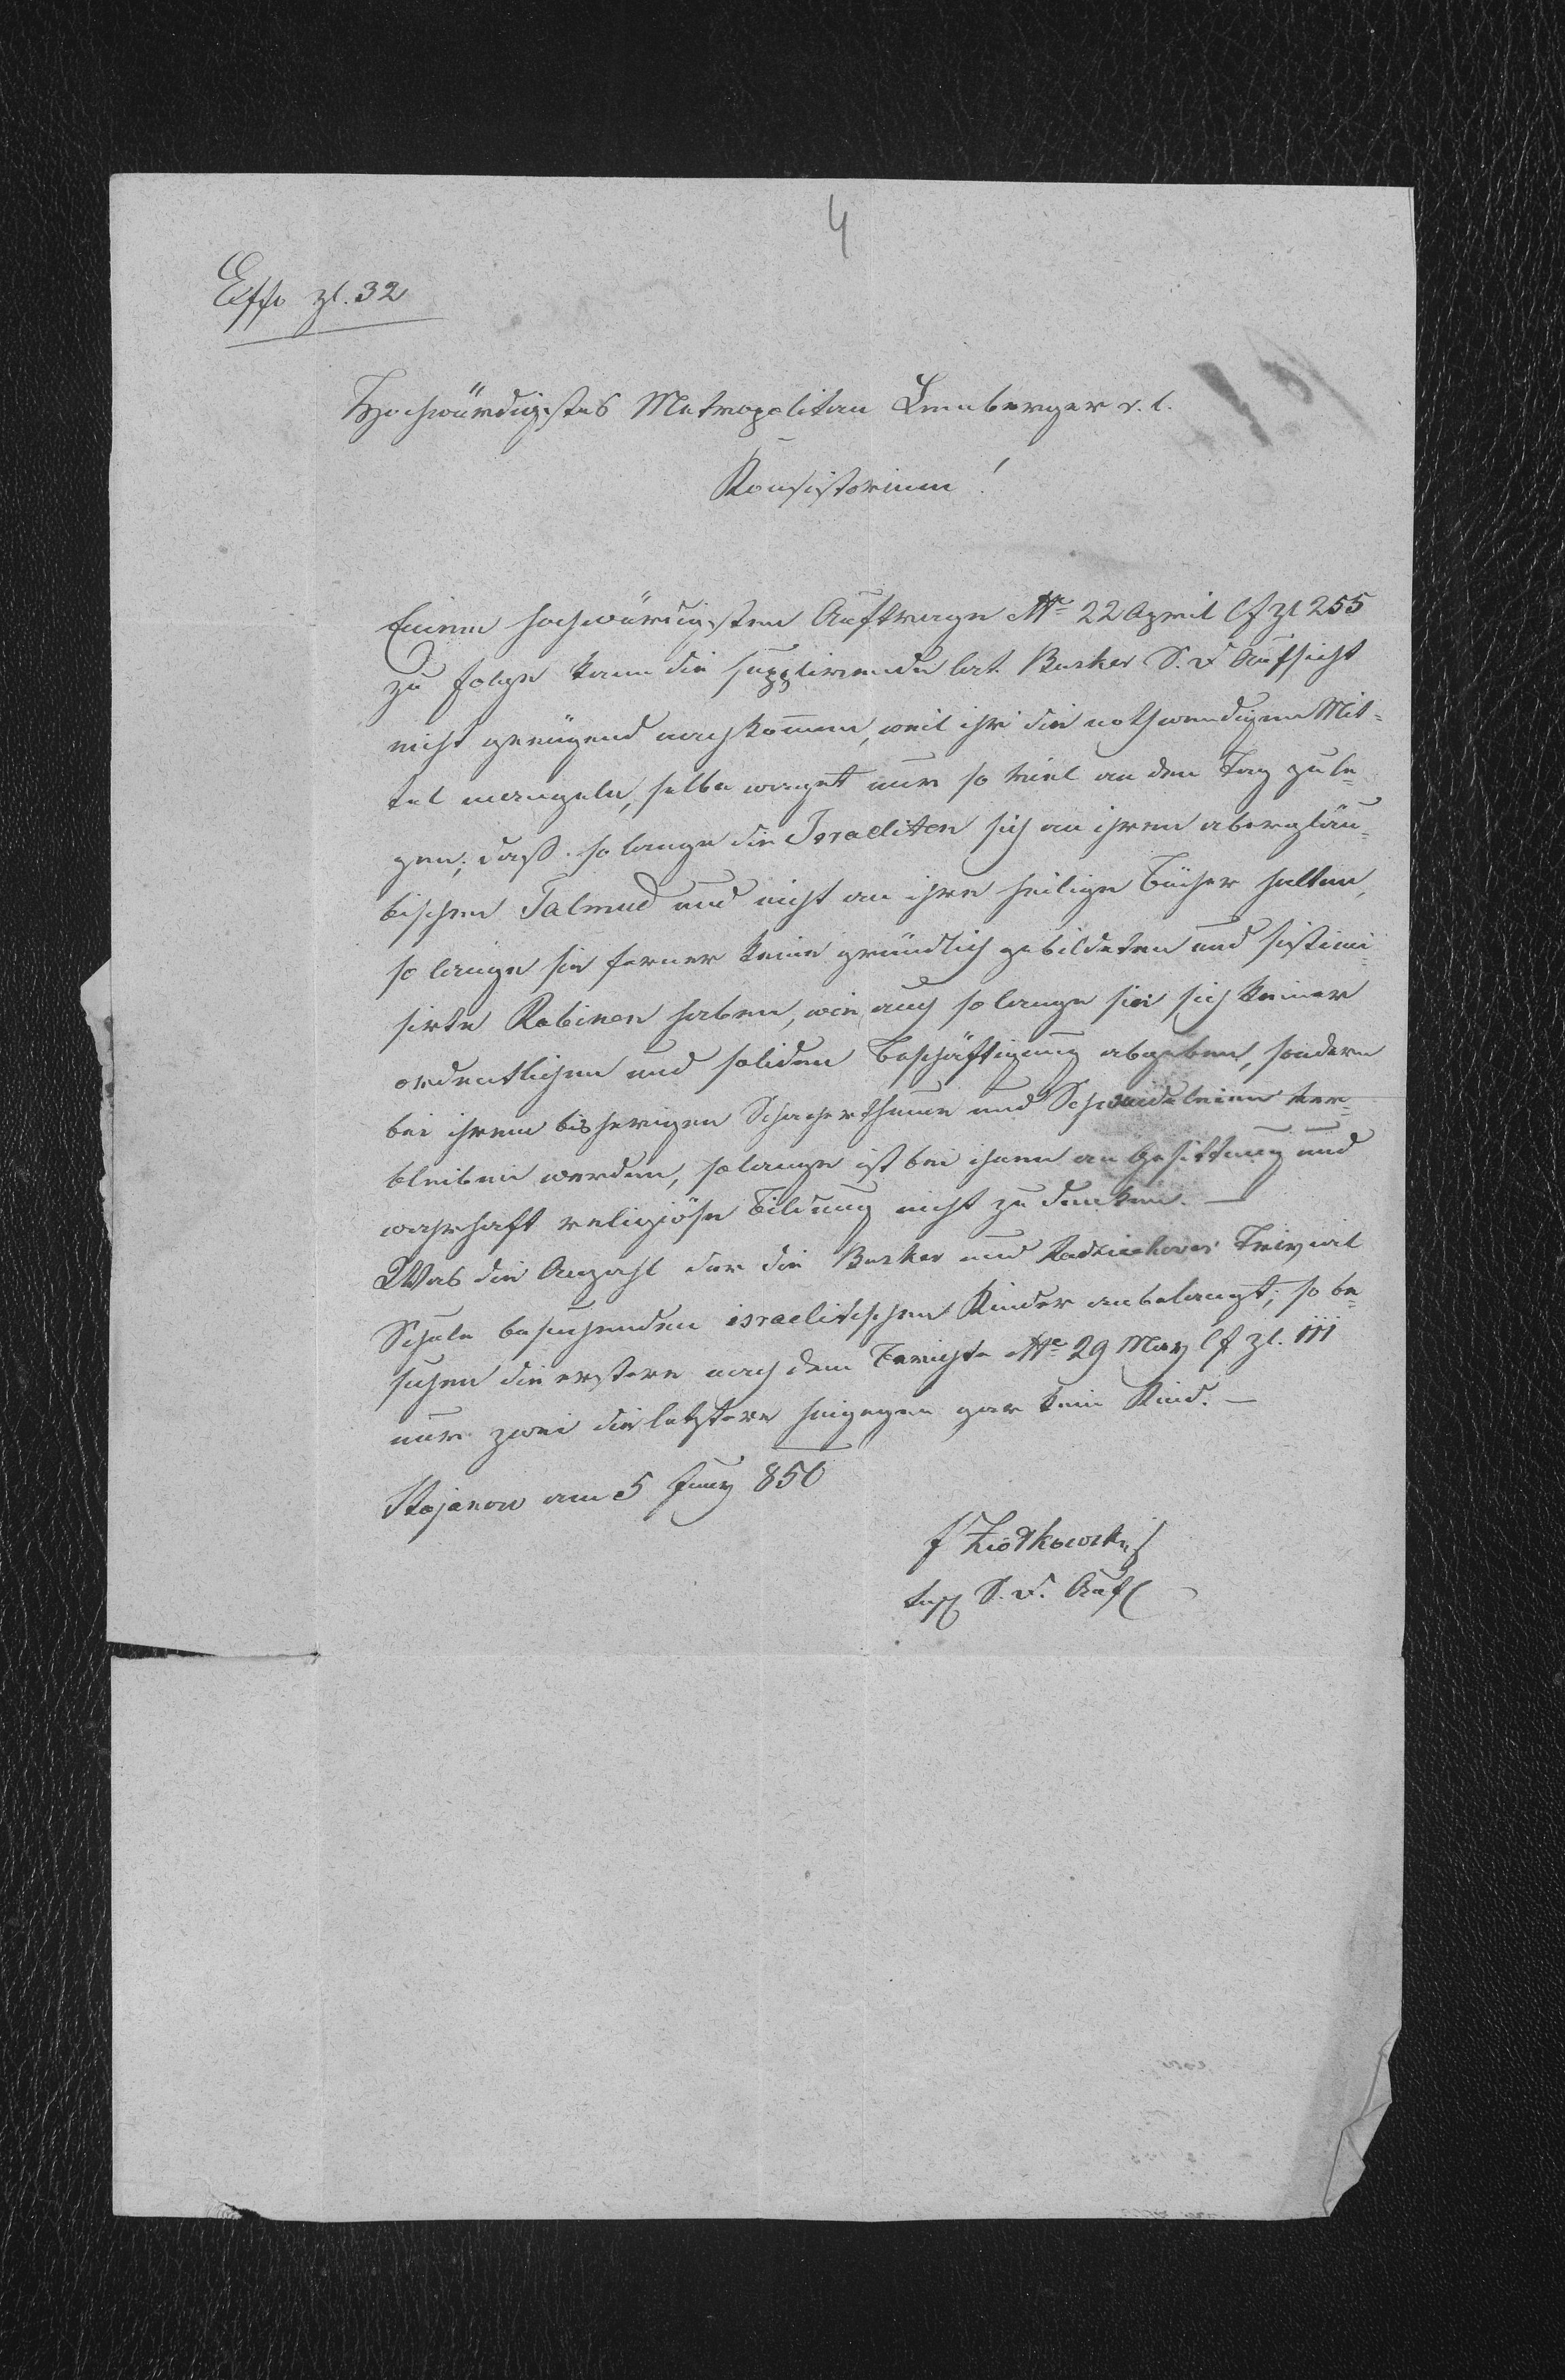 4
zl. 32
Hochwürdigstes Metropolitan Lemberger r. l.
Konsistorium!
Einem hochwürdigsten Auftrage 22 April zl 255
zu Folge kann die supplirende lat. Busker S. D. Aufsicht
nicht genügend nachkommen, weil ihr die nothwendigen Mit-
tel mangeln, selbe waget nur so viel an den Tag zu le-
gen; daß so lange die Israeliten sich an ihren abergläu-
bischen Talmud und nicht an ihre heilige Bücher halten,
so lange sie ferner keine gründlich gebildeten und sistimi-
sirte Rabinen haben, wie auch so lange sie sich keiner
ordentlichen und soliden Beschäftigung abgeben, sondern
bei ihrem bisherigen Schacherthume und Schwindeleien ver-
bleiben werden, solange ist bei ihnen an Gesittung und
wahrhaft religiöse Bildung nicht zu denken. —
Was die Anzahl der die Busker und Radziechover Trivial
Schule besuchenden israelitischen Kinder anbelangt; so be-
suchen die erstere nach dem Berichte 29 May zl. 111
nur zwei die letztere hingegen gar kein Kind. —
Stojanow am 5 Juny 850
J Ziółkowski
S. D. Auf